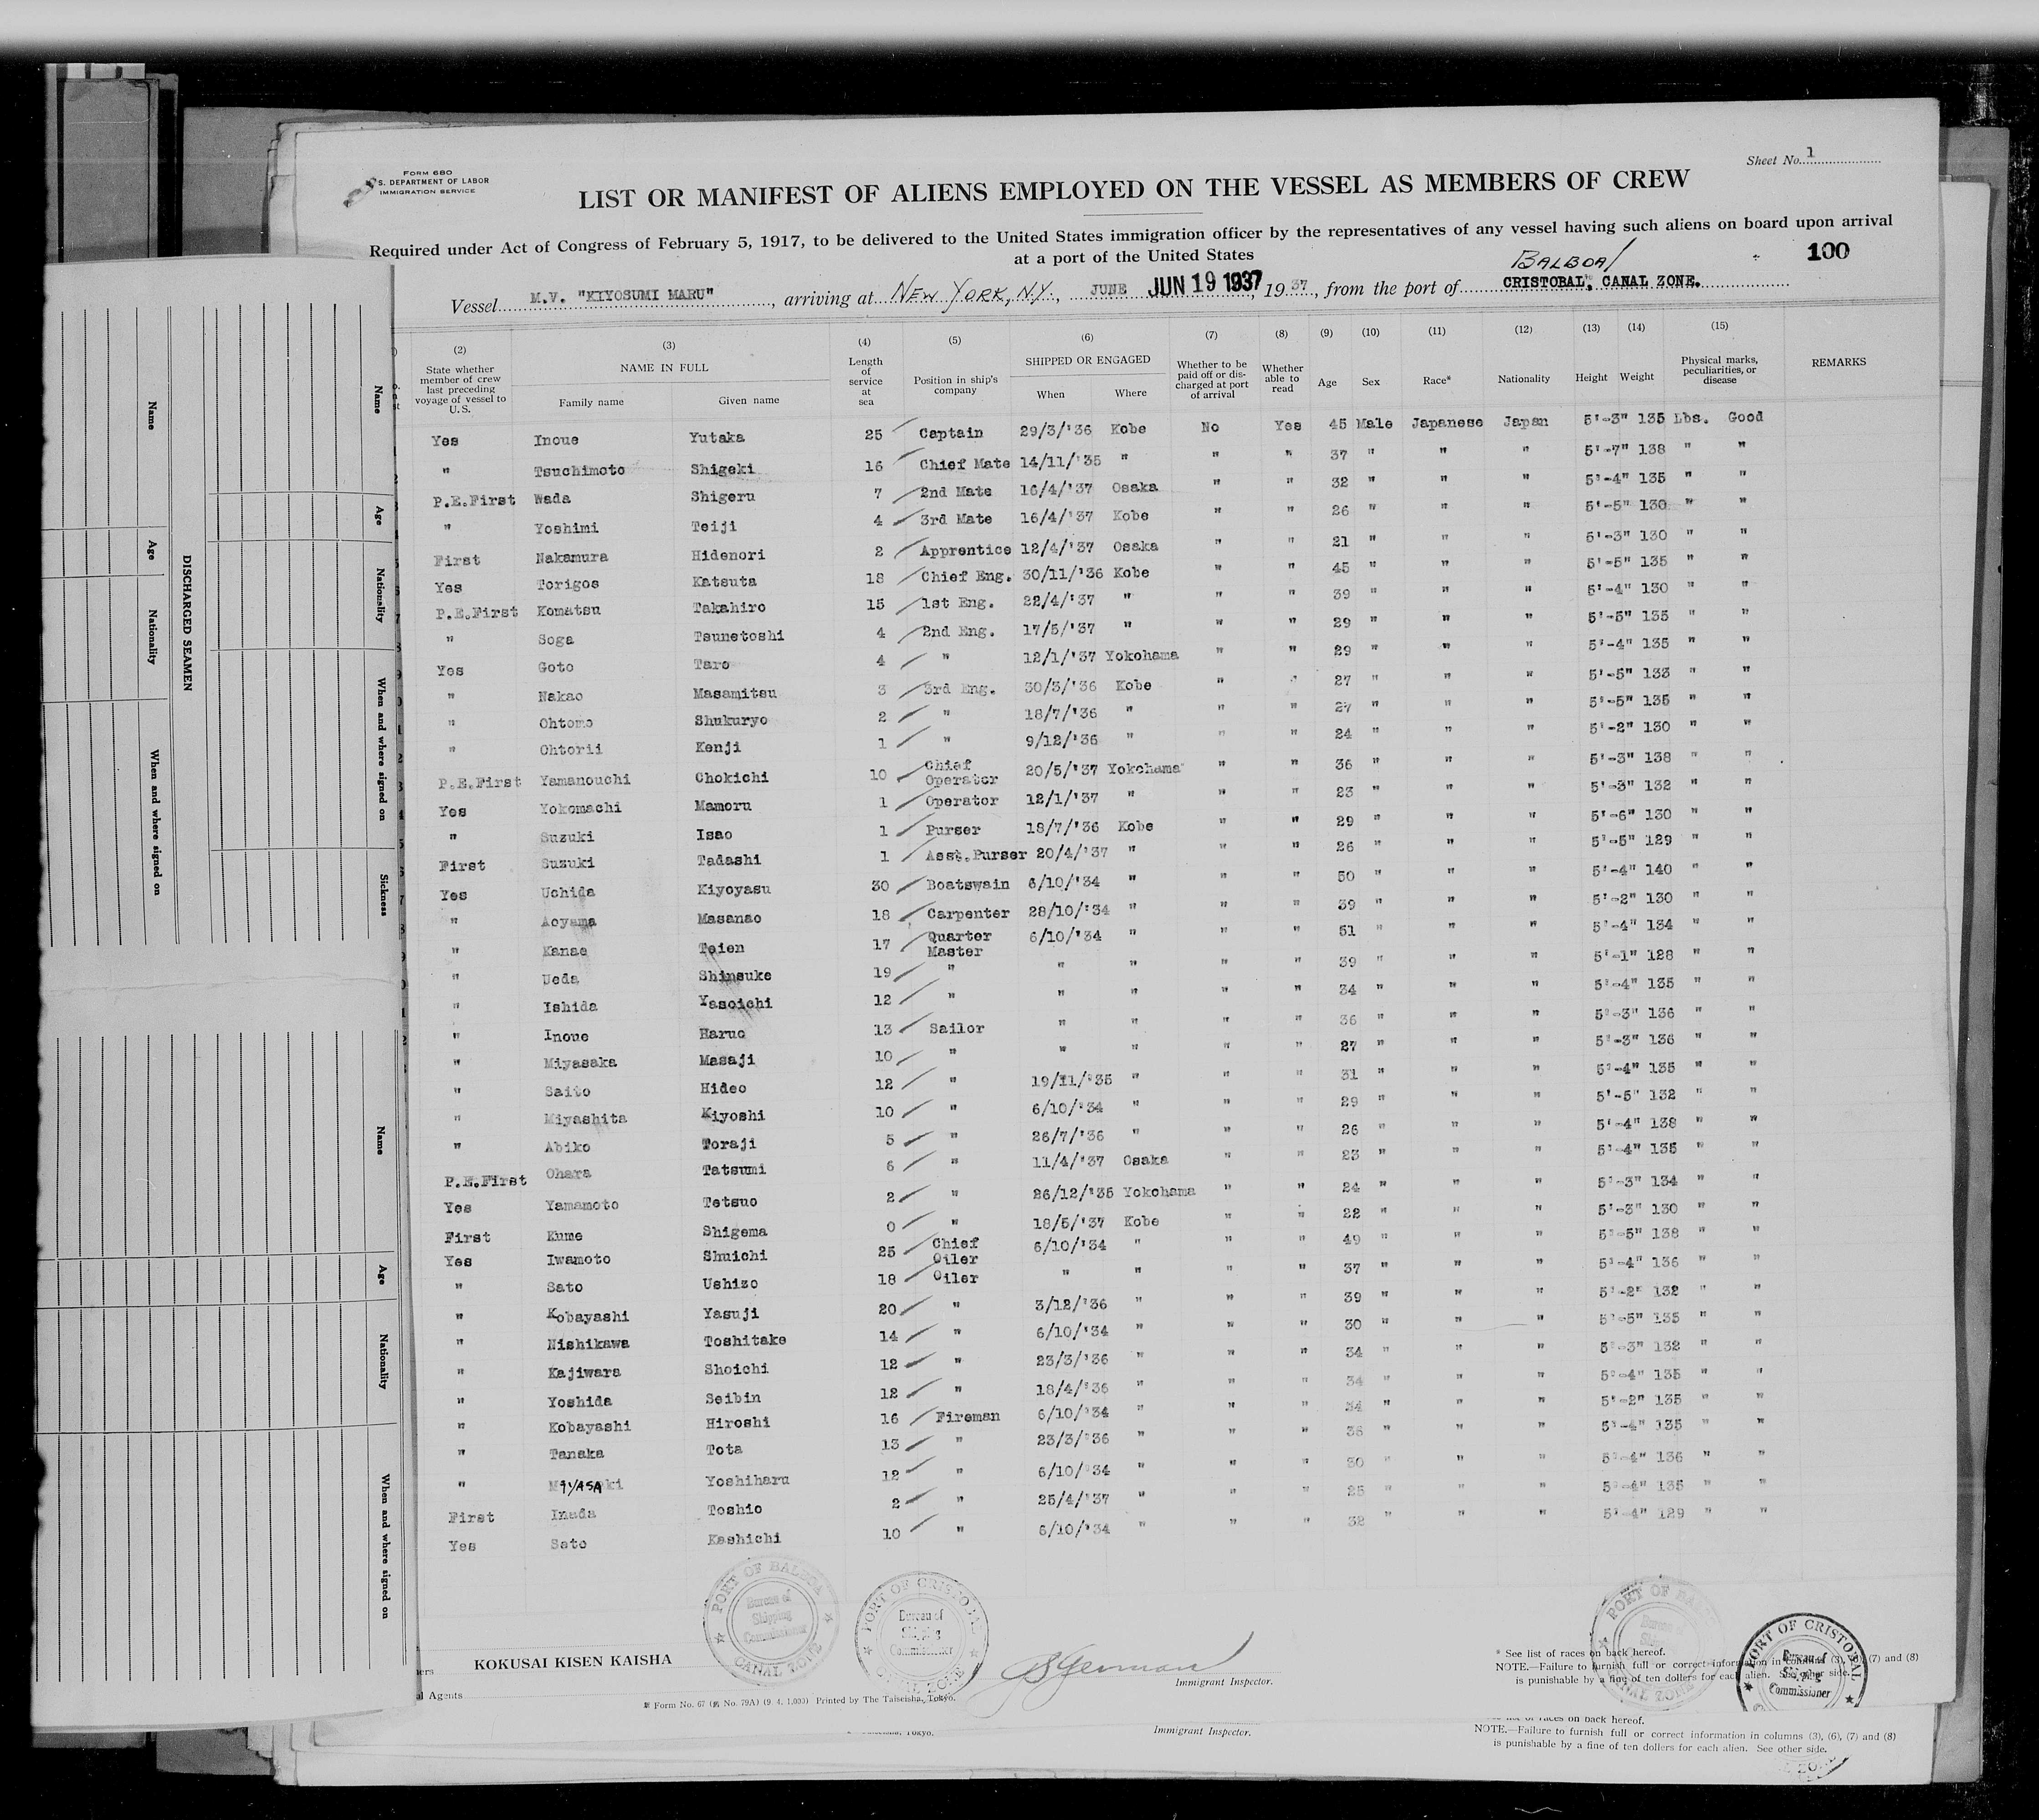 Sheet No. 1
FORM 680
S. DEPARTMENT OF LABOR
IMMIGRATION SERVICE
LIST OR MANIFEST OF ALIENS EMPLOYED ON THE VESSEL AS MEMBERS OF CREW
Required under Act of Congress of February 5, 1917, to be delivered to the United States immigration officer by the representatives of any vessel having such aliens on board upon arrival
at a port of the United States
BALBOA/
100
Vessel M.V. "KIYOSUMI MARU", arriving at NEW YORK, N.Y., JUNE JUN 19 1937, 1937, from the port of CRISTOBAL, CANAL ZONE.
(2) (3) (4) (5) (6) (7) (8) (9) (10) (11) (12) (13) (14) (15)
State whether member of crew last preceding voyage of vessel to U.S.
NAME IN FULL
Family name
Given name
Length of service at sea
Position in ship's company
SHIPPED OR ENGAGED
When
Where
Whether to be paid off or discharged at port of arrival
Whether able to read
Age
Sex
Race*
Nationality
Height
Weight
Physical marks, peculiarities, or disease
REMARKS
Yes Inoue Yutaka 25 Captain 29/3/'36 Kobe No Yes 45 Male Japanese Japan 5'-3" 135 Lbs. Good
" Tsuchimoto Shigeki 16 Chief Mate 14/11/'35 " " " 37 " " " 5'-7" 138 " "
P.E.First Wada Shigeru 7 2nd Mate 16/4/'37 Osaka " " 32 " " " 5'-4" 135 " "
" Yoshimi Teiji 4 3rd Mate 16/4/'37 Kobe " " 26 " " " 5'-5" 130 " "
First Nakamura Hidenori 2 Apprentice 12/4/'37 Osaka " " 21 " " " 5'-3" 130 " "
Yes Torigoe Katsuta 18 Chief Eng. 30/11/'36 Kobe " " 45 " " " 5'-5" 135 " "
P.E.First Komatsu Takahiro 15 1st Eng. 22/4/'37 " " " 39 " " " 5'-4" 130 " "
" Soga Tsunetoshi 4 2nd Eng. 17/5/'37 " " " 29 " " " 5'-5" 135 " "
Yes Goto Taro 4 " 12/1/'37 Yokohama " " 29 " " " 5'-4" 135 " "
" Nakao Masamitsu 3 3rd Eng. 30/3/'36 Kobe " " 27 " " " 5'-5" 133 " "
" Ohtomo Shukuryo 2 " 18/7/'36 " " " 27 " " " 5'-5" 135 " "
" Ohtorii Kenji 1 " 9/12/'36 " " " 24 " " " 5'-2" 130 " "
P.E.First Yamanouchi Chokichi 10 Chief Operator 20/5/'37 Yokohama " " 36 " " " 5'-3" 138 " "
Yes Yokomachi Mamoru 1 Operator 12/1/'37 " " " 23 " " " 5'-3" 132 " "
" Suzuki Isao 1 Purser 18/7/'36 Kobe " " 29 " " " 5'-6" 130 " "
First Suzuki Tadashi 1 Asst.Purser 20/4/'37 " " " 26 " " " 5'-5" 129 " "
Yes Uchida Kiyoyasu 30 Boatswain 6/10/'34 " " " 50 " " " 5'-4" 140 " "
" Aoyama Masanao 18 Carpenter 28/10/'34 " " " 39 " " " 5'-2" 130 " "
" Kanae Teien 17 Quarter Master 6/10/'34 " " " 51 " " " 5'-4" 134 " "
" Ueda Shinsuke 19 " " " " " 39 " " " 5'-1" 128 " "
" Ishida Yasoichi 12 " " " " " 34 " " " 5'-4" 135 " "
" Inoue Haruo 13 Sailor " " " " 36 " " " 5'-3" 136 " "
" Miyasaka Masaji 10 " " " " " 27 " " " 5'-3" 136 " "
" Saito Hideo 12 " 19/11/'35 " " " 31 " " " 5'-4" 135 " "
" Miyashita Kiyoshi 10 " 6/10/'34 " " " 29 " " " 5'-5" 132 " "
" Abiko Toraji 5 " 26/7/'36 " " " 26 " " " 5'-4" 138 " "
P.E.First Ohara Tatsumi 6 " 11/4/'37 Osaka " " 23 " " " 5'-4" 135 " "
Yes Yamamoto Tetsuo 2 " 26/12/'35 Yokohama " " 24 " " " 5'-3" 134 " "
First Kume Shigema 0 " 18/5/'37 Kobe " " 22 " " " 5'-3" 130 " "
Yes Iwamoto Shuichi 25 Chief Oiler 6/10/'34 " " " 49 " " " 5'-5" 138 " "
" Sato Ushizo 18 Oiler " " " " 37 " " " 5'-4" 136 " "
" Kobayashi Yasuji 20 " 3/12/'36 " " " 39 " " " 5'-2" 132 " "
" Nishikawa Toshitake 14 " 6/10/'34 " " " 30 " " " 5'-5" 135 " "
" Kajiwara Shoichi 12 " 23/3/'36 " " " 34 " " " 5'-3" 132 " "
" Yoshida Seibin 12 " 18/4/'36 " " " 34 " " " 5'-4" 135 " "
" Kobayashi Hiroshi 16 Fireman 6/10/'34 " " " 34 " " " 5'-2" 135 " "
" Tanaka Tota 13 " 23/3/'36 " " " " " " 5'-4" 135 " "
" MiYASAki Yoshiharu 12 " 6/10/'34 " " " 30 " " " 5'-4" 136 " "
First Inada Toshio 2 " 25/4/'37 " " " 25 " " " 5'-4" 135 " "
Yes Sato Kashichi 10 " 6/10/'34 " " " 32 " " " 5'-4" 129 " "
PORT OF BALBOA
Bureau of Shipping Commissioner
CANAL ZONE
PORT OF CRISTOBAL
Bureau of Shipping Commissioner
CANAL ZONE
KOKUSAI KISEN KAISHA
al Agents
Immigrant Inspector.
Form No. 67 (No. 79A) (9. 4. 1,000) Printed by The Taiseisha, Tokyo.
* See list of races on back hereof.
NOTE.—Failure to furnish full or correct information in columns (3), (6), (7) and (8)
is punishable by a fine of ten dollars for each alien. See other side.
PORT OF BALBOA
Bureau of
CANAL ZONE
PORT OF CRISTOBAL
Bureau of Shipping Commissioner
Tokyo.
Immigrant Inspector.
races on back hereof.
NOTE.—Failure to furnish full or correct information in columns (3), (6), (7) and (8)
is punishable by a fine of ten dollars for each alien. See other side.
DISCHARGED SEAMEN
Name
Age
Nationality
When and where signed on
Name
Age
Nationality
When and where signed on
Sickness
Name
Age
Nationality
When and where signed on